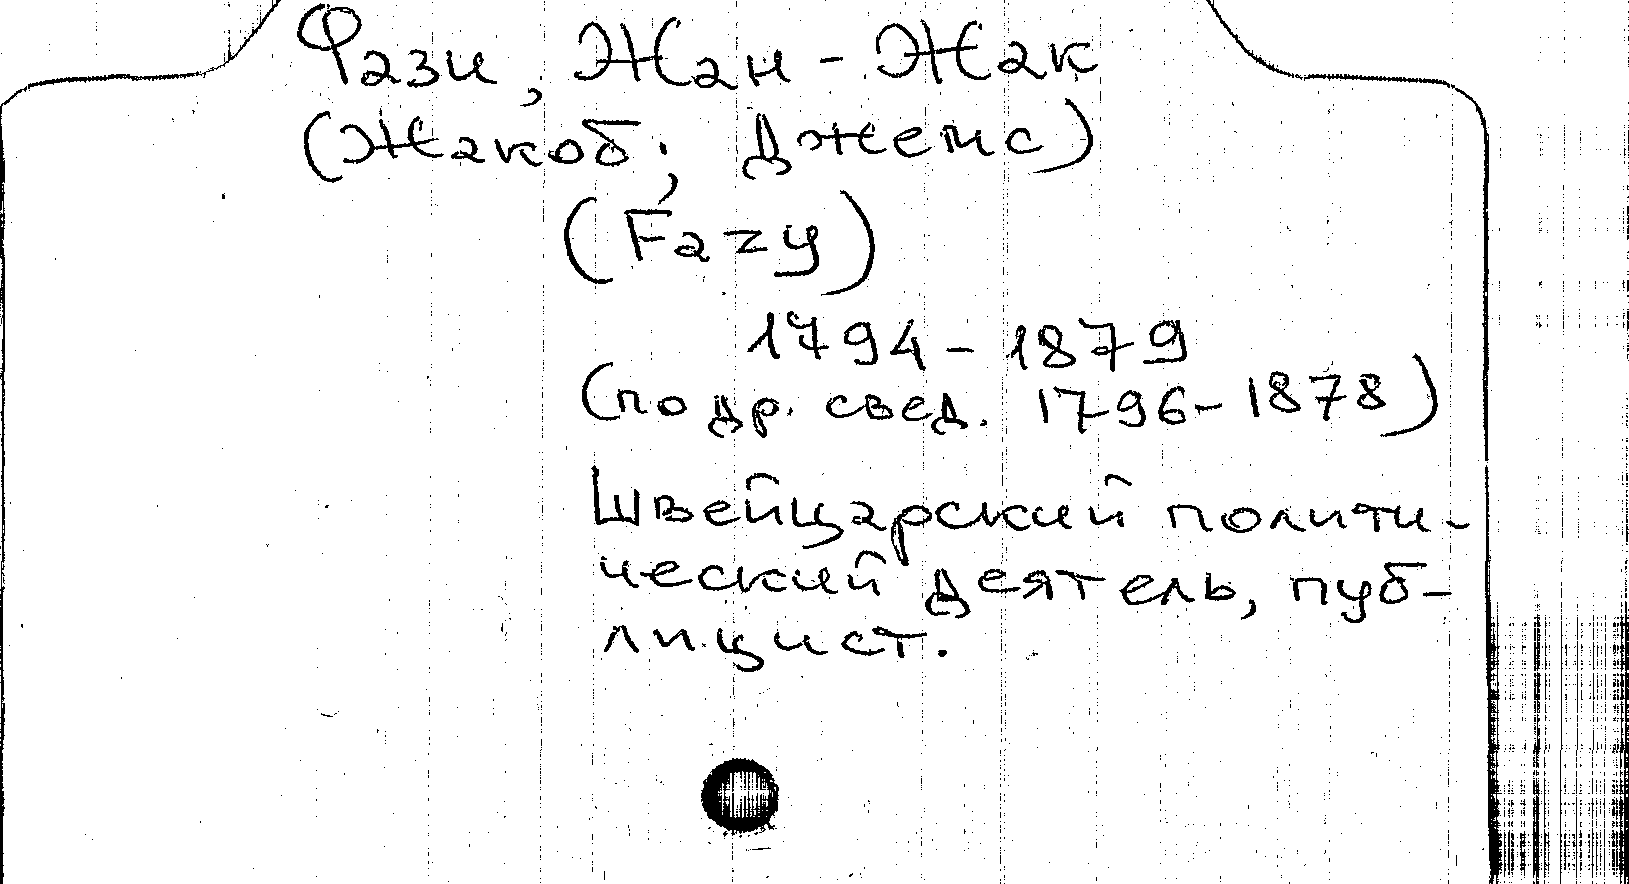 Фази, Жан-Жак
(Жакоб; Джемс)
(Fazy)
1794-1879
(по др. свед. 1796-1878)
Швейцарский полити-
ческий деятель, пуб-
лицист.